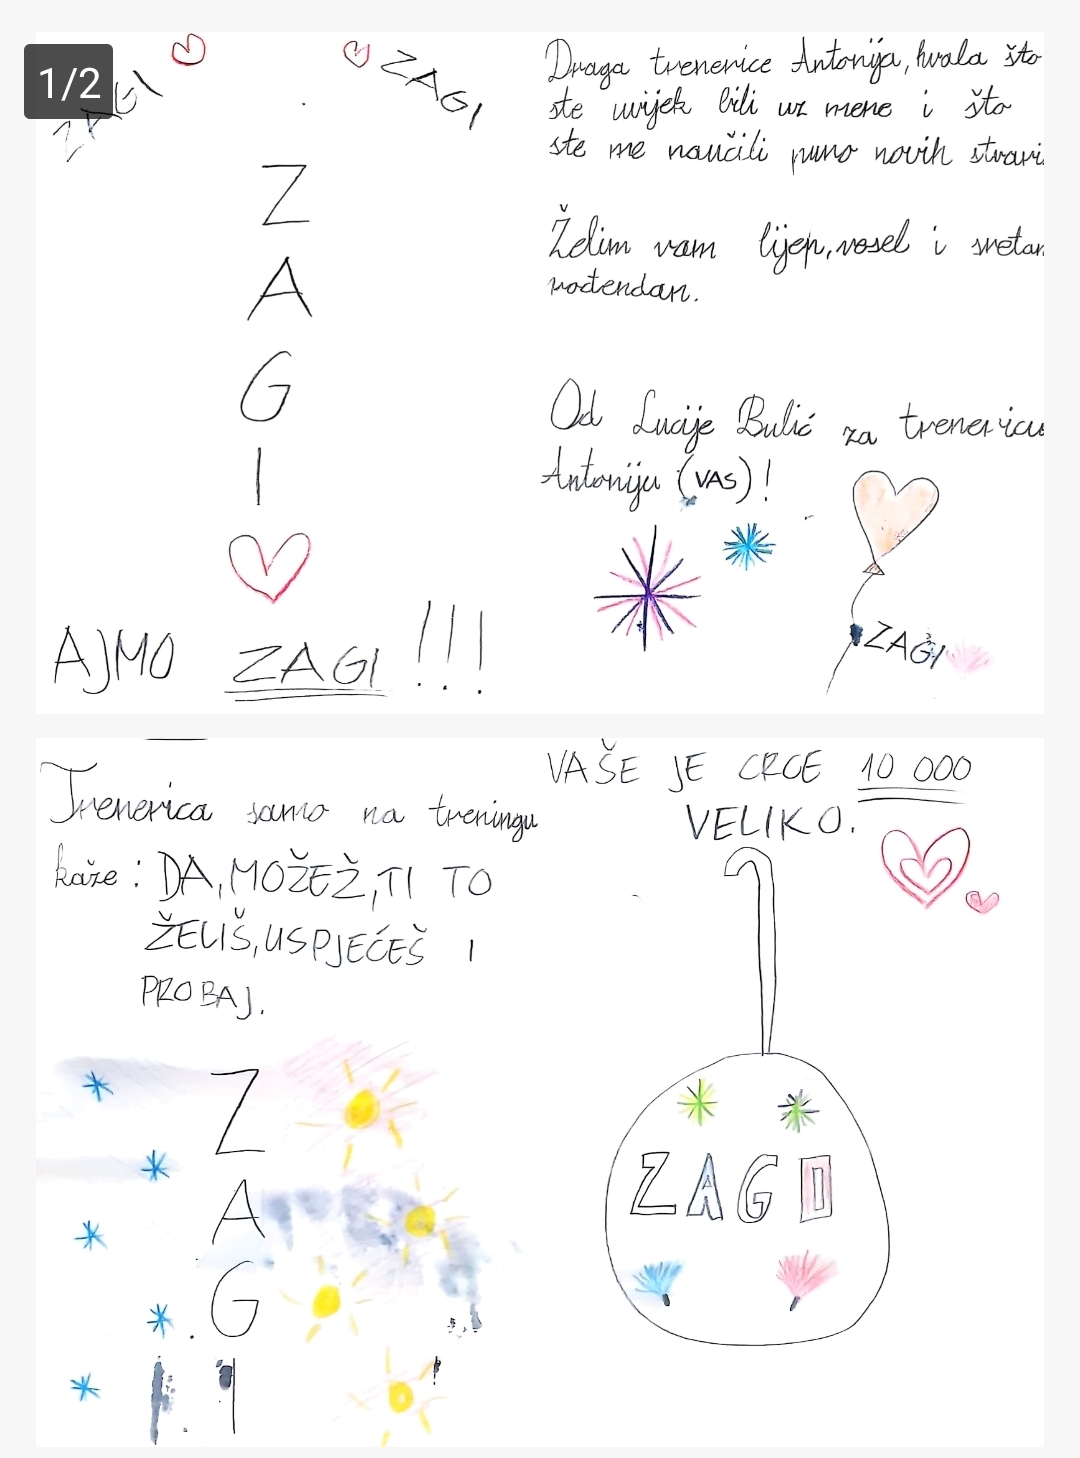 1/2
ZAGI
ZAGI
Z
A
G
I
AJMO ZAGI!!!
Draga trenerice Antonija, hvala što
ste uvijek bili uz mene i što
ste me naučili puno novih stvari
Želim vam lijep, vesel i sretan
rođendan.
Od Lucije Bulić za trenericu
Antoniju (VAS)!
ZAGI
Trenerica samo na treningu
kaže: DA, MOŽEŽ, TI TO
ŽELIŠ, USPJEĆEŠ I
PROBAJ.
Z
A
G
I
VAŠE JE CRCE 10 000
VELIKO.
ZAGI